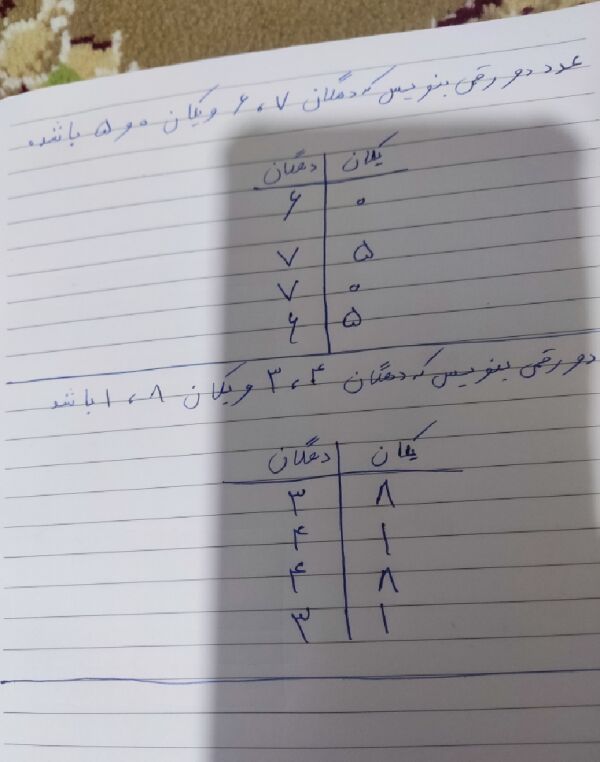 عدد دو رقمی بنویس که دهگان ۷ ، ۶ و یکان ۰ و ۵ باشد.
دهگان یکان
۶ ۰
۷ ۵
۷ ۰
۶ ۵
دو رقمی بنویس که دهگان ۴ ، ۳ و یکان ۸ ، ۱ باشد
دهگان یکان
۳ ۸
۴ ۱
۴ ۸
۳ ۱